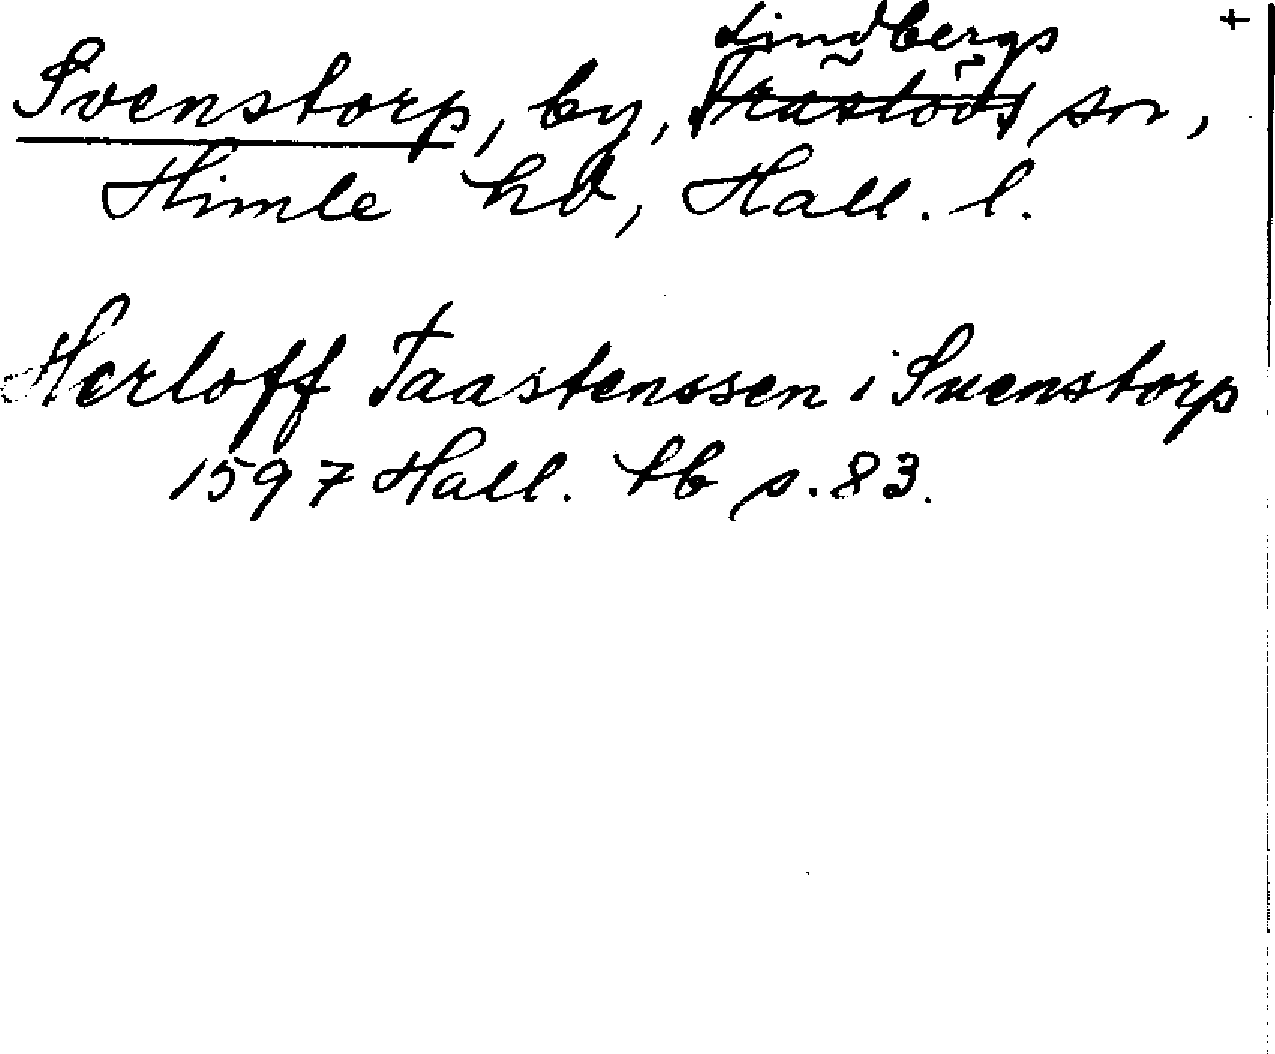 Lindbergs +
Svenstorp, by, Träslövs sn,
Himle hd, Hall. l.
Herloff Taastenssen i Suenstorp
1597 Hall. tb s. 83.